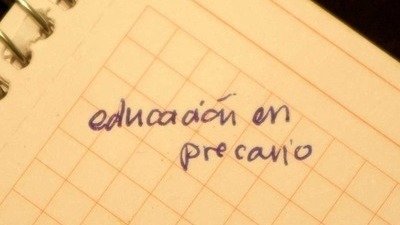 educación en
precario